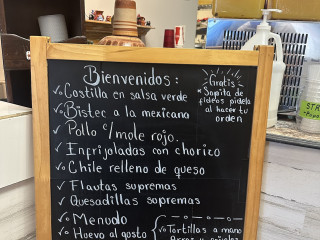 Bienvenidos:
✓ Costilla en salsa verde
✓ Bistec a la mexicana
✓ Pollo c/mole rojo.
✓ Enfrijoladas con chorizo
✓ Chile relleno de queso
✓ Flautas supremas
✓ Quesadillas supremas
✓ Menudo
✓ Huevo al gusto
Gratis
* Sopita de
fideos pidela
al hacer tu
orden
✓ Tortillas a mano
Arroz y frijoles